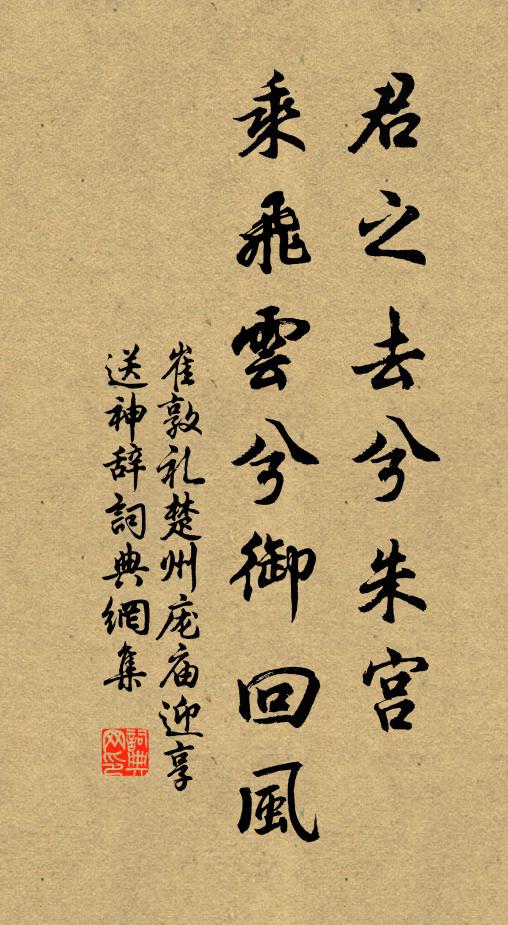 君之去兮朱宫
乘飛雲兮御回風
崔敦礼楚州庞庙迎享
送神辞詞典網集
詞典網印